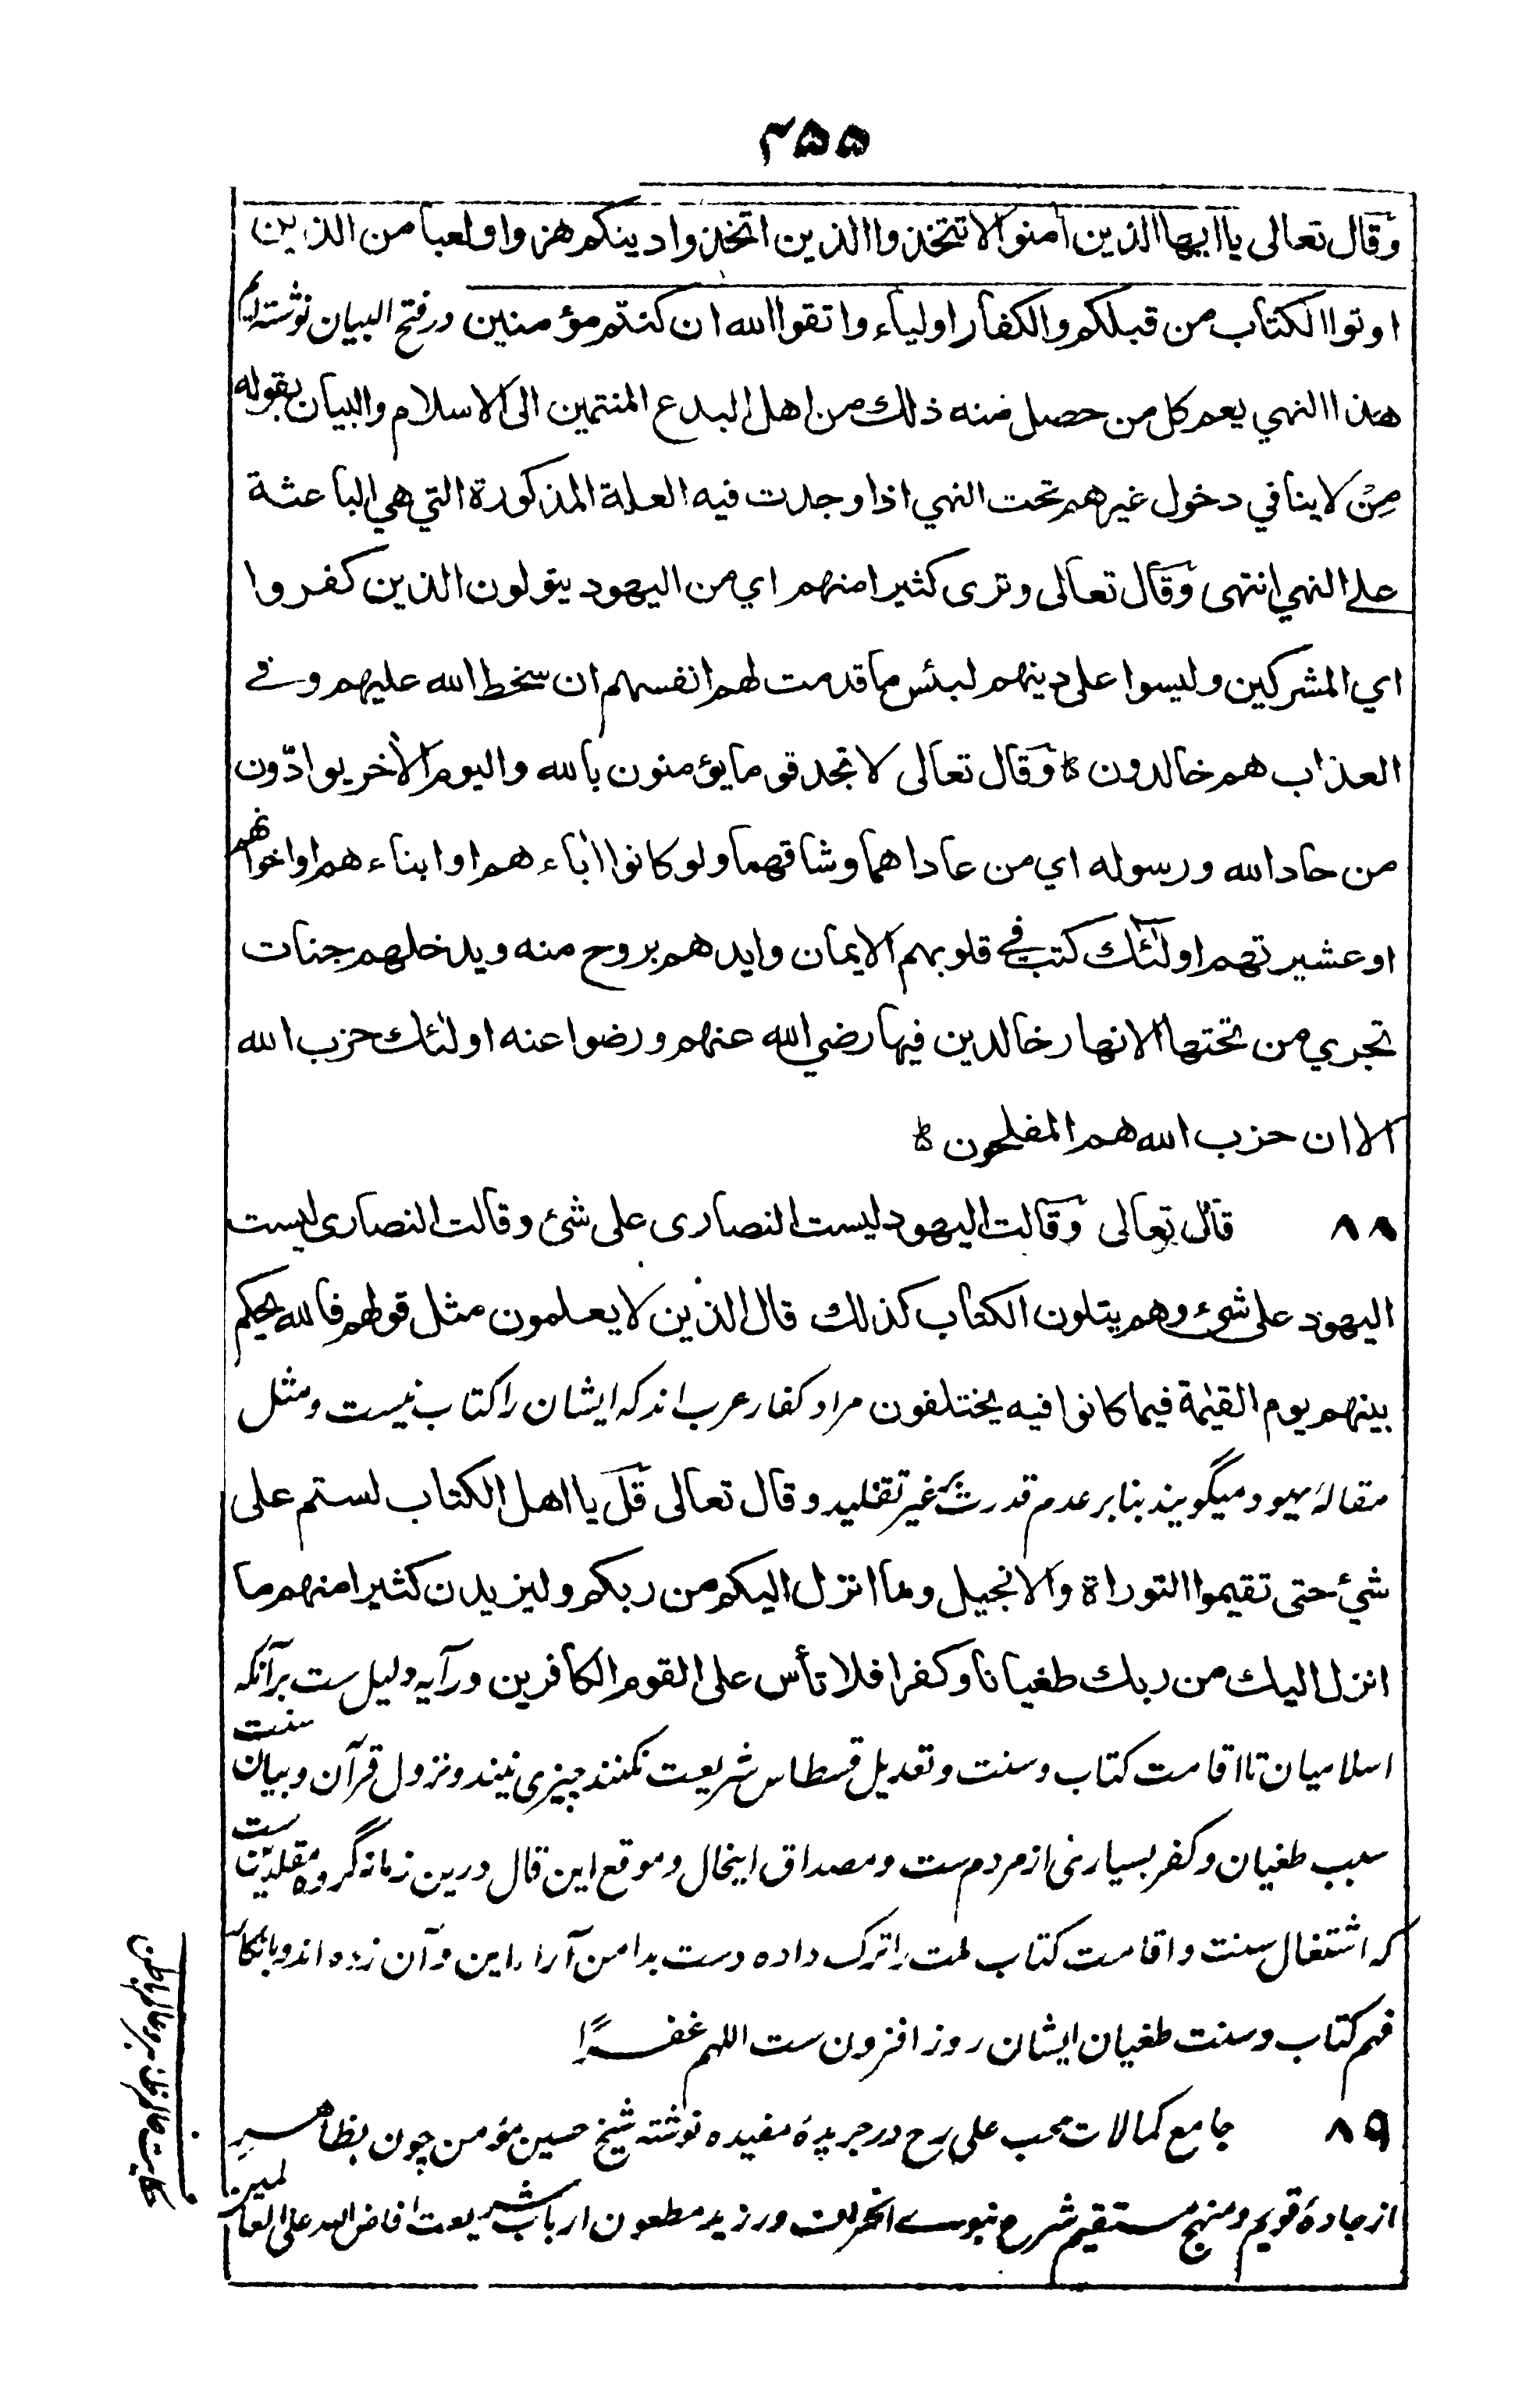 ۴۵۵
وَقال تعالى يا ايها الذين اٰمنوا لا تتخذوا الذين اتخذوا دينكم هزوا ولعبا من الذين
اوتوا الكتاب من قبلكم والكفار اولياء واتقوا الله ان كنتم مؤمنين در فتح البيان نوشته ايم
هذا النهي يعم كل من حصل منه ذلك من اهل البدع المنتمين الى الاسلام والبيان بقوله
مِنْ لا ينافي دخول غيرهم تحت النهي اذا وجدت فيه العلة المذكورة التي هي الباعثة
على النهي انتهى وَقال تعالى وترى كثيرا منهم اي من اليهود يتولون الذين كفروا
اي المشركين وليسوا على دينهم لبئس ما قدمت لهم انفسهم ان سخط الله عليهم وفي
العذاب هم خالدون ه وَقال تعالى لا تجد قوما يؤمنون بالله واليوم الاٰخر يوادّون
من حاد الله ورسوله اي من عاداهما وشاقهما ولو كانوا اٰباءهم او ابناءهم او اخوانهم
او عشيرتهم اولٰئك كتب في قلوبهم الايمان وايدهم بروح منه ويدخلهم جنات
تجري من تحتها الانهار خالدين فيها رضي الله عنهم ورضوا عنه اولٰئك حزب الله
الا ان حزب الله هم المفلحون ه
۸۸ قال تعالى وَقالت اليهود ليست النصارى على شئ وقالت النصارى ليست
اليهود على شئ وهم يتلون الكتاب كذلك قال الذين لا يعلمون مثل قولهم فالله يحكم
بينهم يوم القيٰمة فيما كانوا فيه يختلفون مراد كفار عرب اند كه ايشان را كتاب نيست ومثل
مقالۂ يهود ميگويند بنا بر عدم قدرت بر غير تقليد وقال تعالى قل يا اهل الكتاب لستم على
شيء حتى تقيموا التوراة والانجيل وما انزل اليكم من ربكم وليزيدن كثيرا منهم ما
انزل اليك من ربك طغيانا وكفرا فلا تأس على القوم الكافرين در آيه دليل ست بر آنكه
اسلاميان تا اقامت كتاب وسنت وتعديل قسطاس شريعت نكنند چيزى نيند ونزول قرآن وبيان سنت
سبب طغيان وكفر بسيارى از مردم ست ومصداق اينحال وموقع اين قال درين زمانه گروه مقلدين ست
كه اشتغال سنت واقامت كتاب ملت را ترك داده دست بدامن آراء اين وآن زده اند وبانكار
فهم كتاب وسنت طغيان ايشان روز افزون ست اللهم غفرًا
۸۹ جامع كمالات محب على رح در جريدۀ مفيده نوشته شيخ حسين مؤمن چون بظاهر
از جادۀ قويم ومنهج مستقيم شرع نبوى انحراف ورزيد مطعون ارباب شريعت افاض الله على العالمين